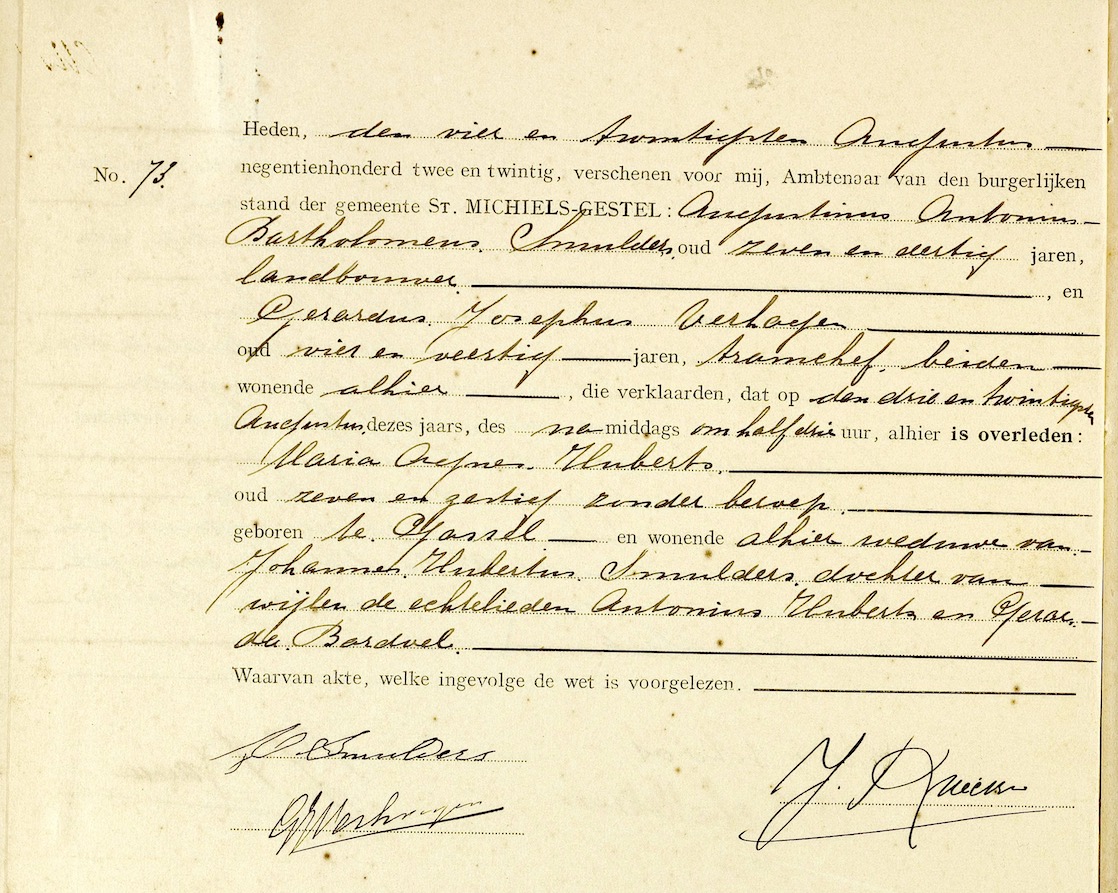 Heden, den vier en twintigsten Augustus
No. 73. negentienhonderd twee en twintig, verschenen voor mij, Ambtenaar van den burgerlijken
stand der gemeente ST. MICHIELS-GESTEL: Augustinus Antonius
Bartholomeus Smulders, oud zeven en dertig jaren,
landbouwer, en
Gerardus Josephus Verhagen
oud vier en veertig jaren, tramchef, beiden
wonende alhier, die verklaarden, dat op den drie en twintigsten
Augustus dezes jaars, des namiddags om half drie uur, alhier is overleden:
Maria Agnes Huberts,
oud zeven en zestig zonder beroep.
geboren te Gassel en wonende alhier weduwe van
Johannes Hubertus Smulders, dochter van
wijlen de echtelieden Antonius Huberts en Gerar-
da Bardoel.
Waarvan akte, welke ingevolge de wet is voorgelezen.
Smulders
Verhagen
J.